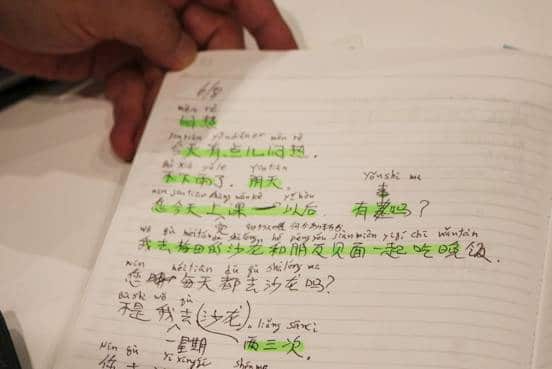 6/8
mēn rè
闷热
jīntiān yǒudiǎnr mēn rè
今天有点儿闷热。
bú xià yǔ le yīntiān
不下雨了。阴天。
yǒushì ma
nín jīntiān shàng wán kè yǐhòu
事
您今天上课 以后 有 吗？
wǒ qù méitián de shālóng hé péngyou jiànmiàn yìqǐ chī wǎnfàn
我去梅田的沙龙和朋友见面一起吃晚饭。
nín měitiān dū qù shālóng ma
您 每天都去沙龙吗？
Búshì wǒ qù
不是 我去(沙龙)
liǎng sāncì
一星期 两三次。
yì xīngqī
Nín qù shénme